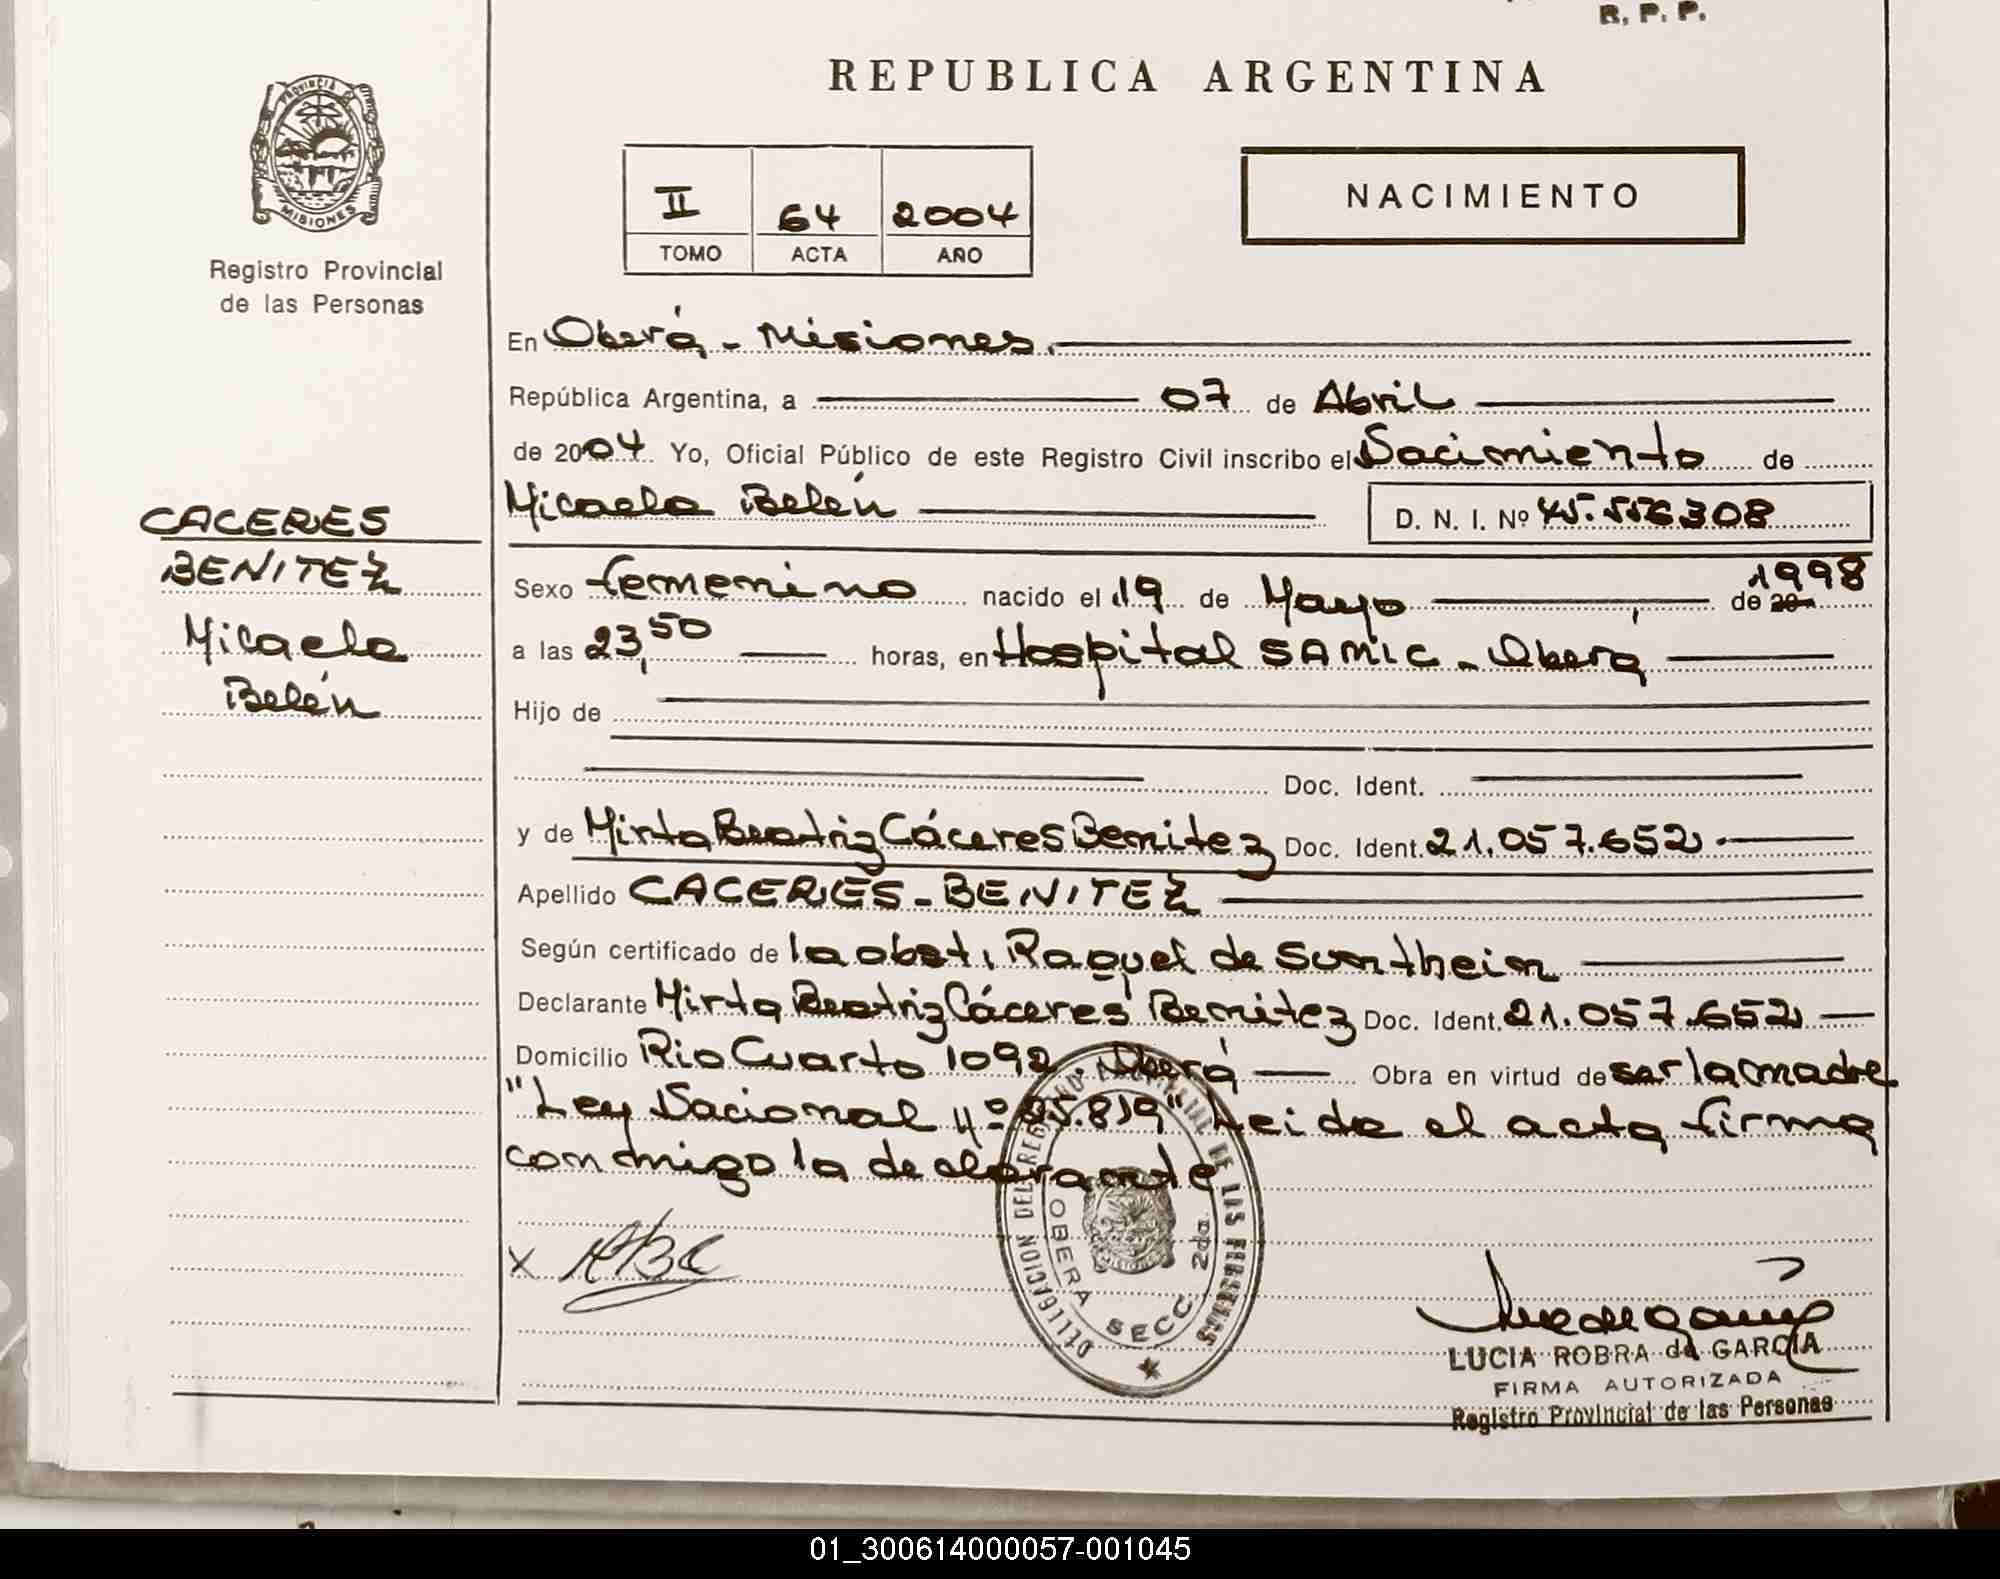 R. P. P.
REPUBLICA ARGENTINA
PROVINCIA DE
MISIONES
Registro Provincial
de las Personas
II 64 2004
TOMO ACTA AÑO
NACIMIENTO
En Oberá - Misiones.
República Argentina, a 07 de Abril
de 2004 Yo, Oficial Público de este Registro Civil inscribo el Nacimiento de
Micaela Belén D. N. I. Nº 45.556.308
CACERES
BENITEZ
Micaela
Belén
Sexo femenino nacido el 19 de Mayo de 20 1998
a las 23,50 horas, en Hospital SAMIC - Oberá
Hijo de
Doc. Ident.
y de Mirta Beatriz Cáceres Benitez Doc. Ident. 21.057.652
Apellido CACERES - BENITEZ
Según certificado de la obst. Raquel de Suntheim
Declarante Mirta Beatriz Cáceres Benitez Doc. Ident. 21.057.652
Domicilio Rio Cuarto 1092. Oberá Obra en virtud de ser la madre
"Ley Nacional Nº 25.819" Leida el acta firma
conmigo la declarante
DELEGACION DEL REGISTRO PROVINCIAL DE LAS PERSONAS
OBERA SECC. 2da.
x MBC
LUCIA ROBRA de GARCIA
FIRMA AUTORIZADA
Registro Provincial de las Personas
01_300614000057-001045